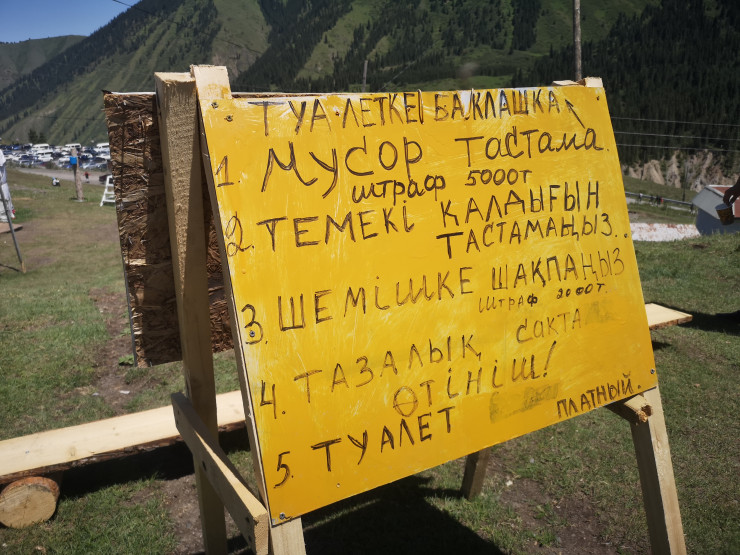 ТУА-ЛЕТКЕ БАКЛАШКА
1. МУСОР ТАСТАМА.
ШТРАФ 5000Т
2. ТЕМЕКІ ҚАЛДЫҒЫН
ТАСТАМАҢЫЗ..
3. ШЕМІШКЕ ШАҚПАҢЫЗ
ШТРАФ 2000Т.
4. ТАЗАЛЫҚ САҚТА
ӨТІНІШ!
5. ТУАЛЕТ ПЛАТНЫЙ.